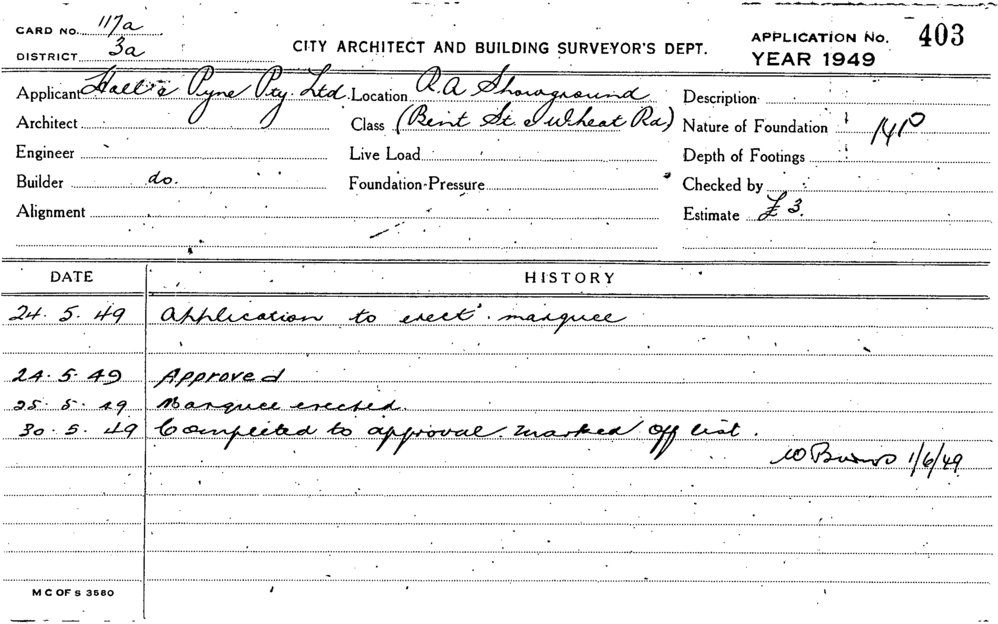 CARD NO. 117a
DISTRICT 3a
CITY ARCHITECT AND BUILDING SURVEYOR'S DEPT.
APPLICATION No. 403
YEAR 1949
Applicant Hall & Pyne Pty. Ltd. Location R.A Showground Description
Architect Class (Bent St. & Wheat Rd) Nature of Foundation
Engineer Live Load Depth of Footings
Builder do. Foundation-Pressure Checked by
Alignment Estimate £3.
DATE HISTORY
24. 5. 49 Application to erect marquee
24. 5. 49 Approved
25. 5. 49 Marquee erected.
30. 5. 49 Completed to approval. Marked off list.
1/6/49
M C OF S 3580